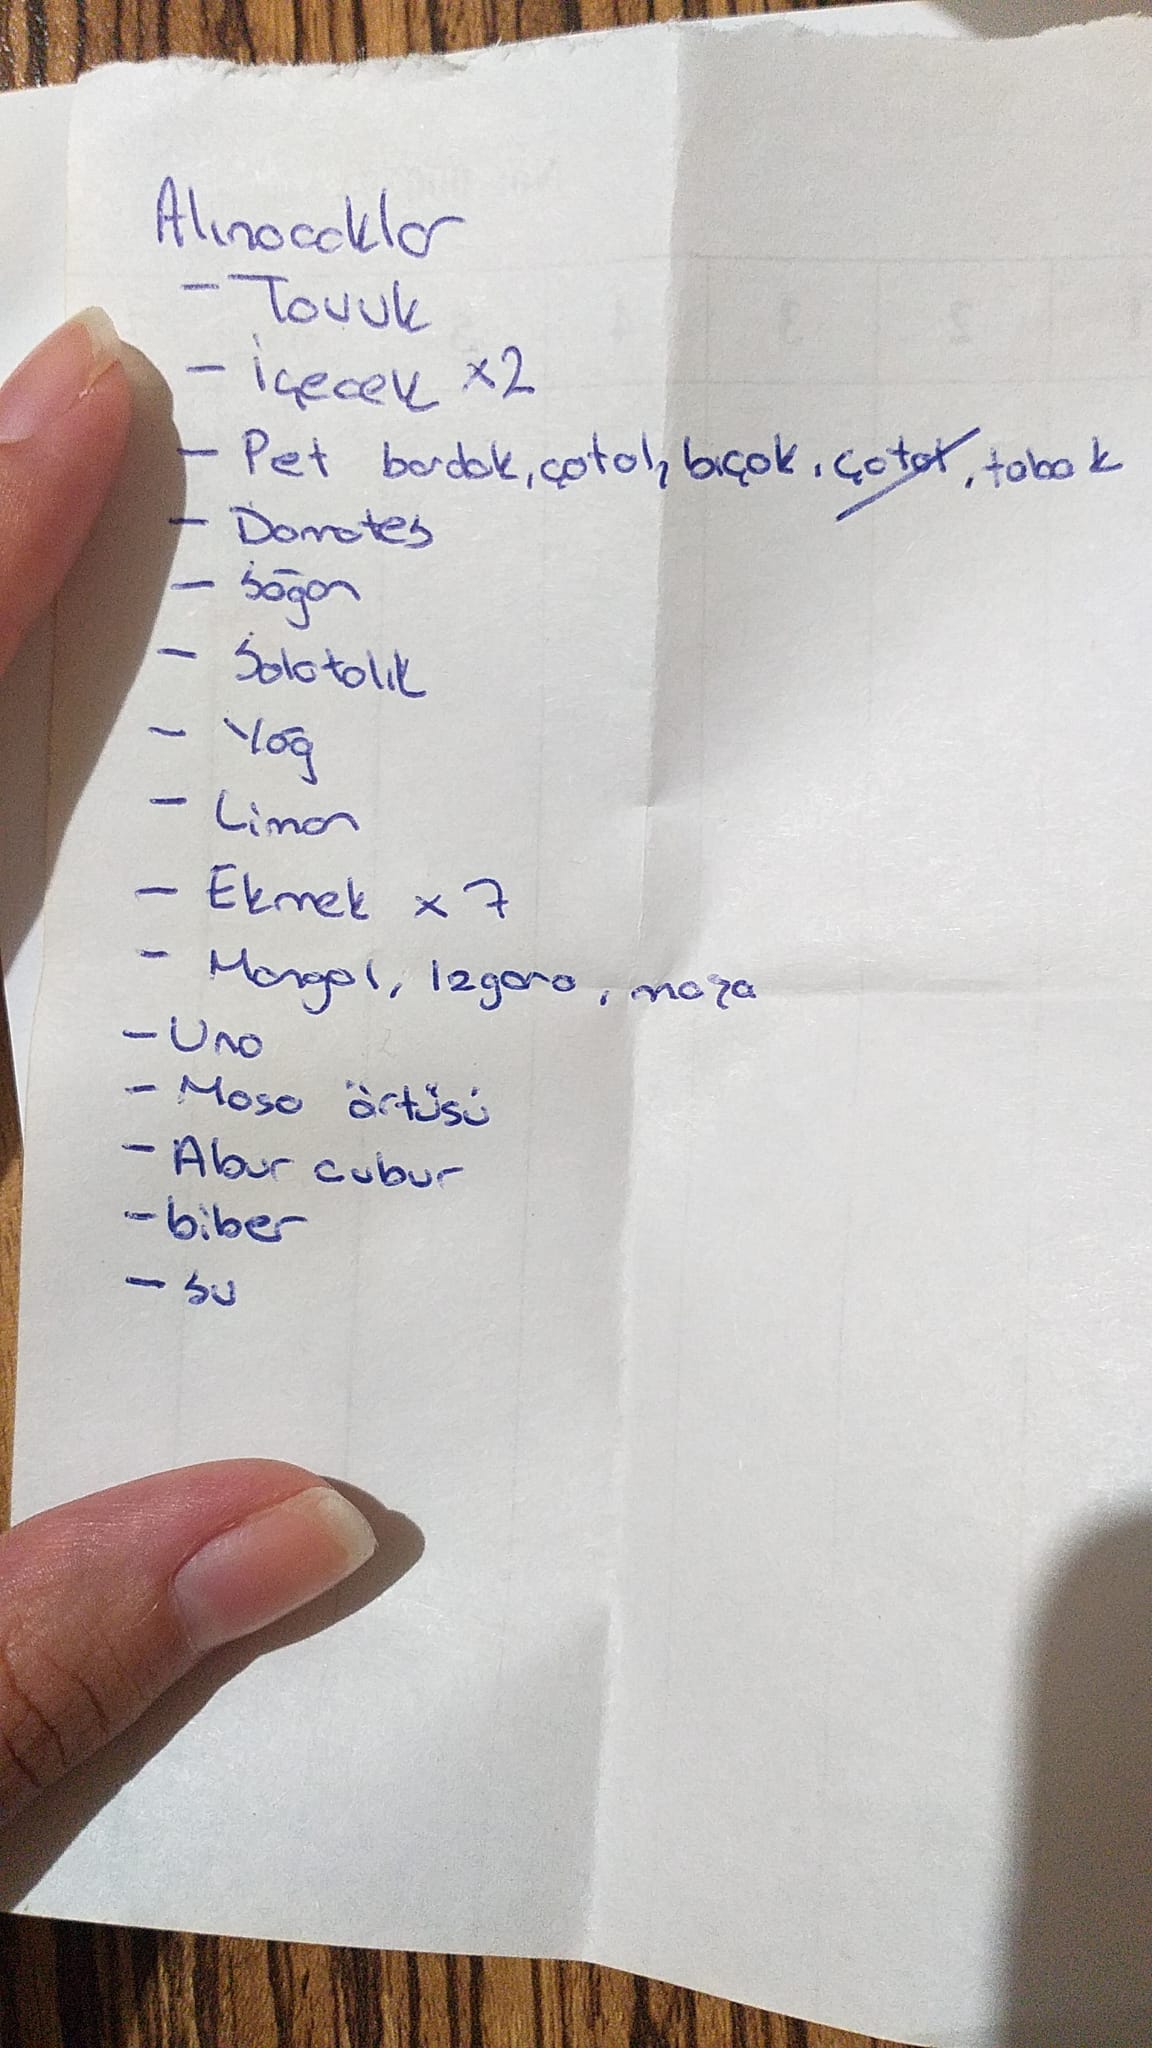 Alınacaklar
- Tavuk
- İçecek x2
- Pet bardak, çatal, bıçak, çatal, tabak
- Domates
- Soğan
- Salatalık
- Yağ
- Limon
- Ekmek x 7
- Mangal, Izgara, maşa
- Uno
- Masa örtüsü
- Abur cubur
- biber
- su